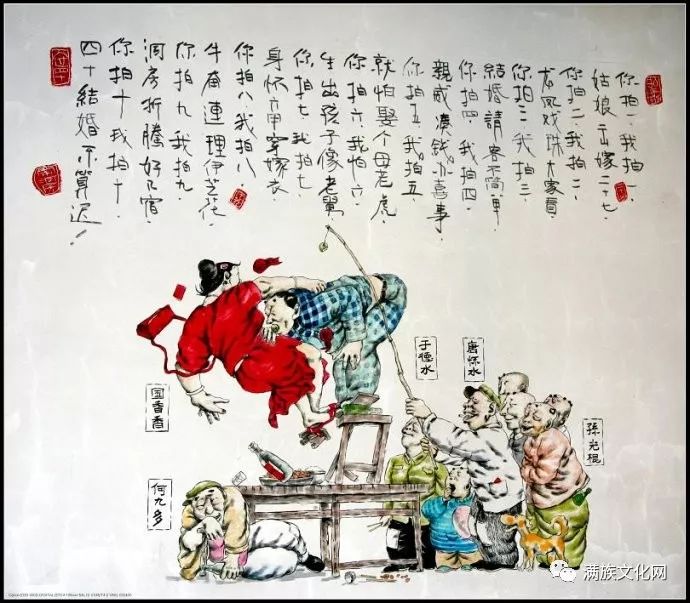 你拍一,我拍一,
姑娘嫁二十七,
你拍二,我拍二,
龙凤戏珠大家看,
你拍三,我拍三,
結婚請客不簡單,
你拍四,我拍四,
親戚湊錢办喜事,
你拍五,我拍五,
就怕娶个母老虎,
你拍六,我拍六,
生出孩子像老舅,
你拍七,我拍七,
身怀六甲穿嫁衣,
你拍八,我拍八,
連理花,
你拍九,我拍九,
洞房折騰好几宿,
你拍十,我拍十,
四十結婚不算遲!
于德水
唐怀水
孫光棍
国香香
何九多
满族文化网